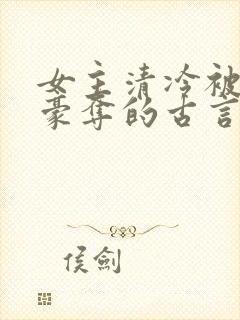 女主清冷被
豪夺的古言
侯剑